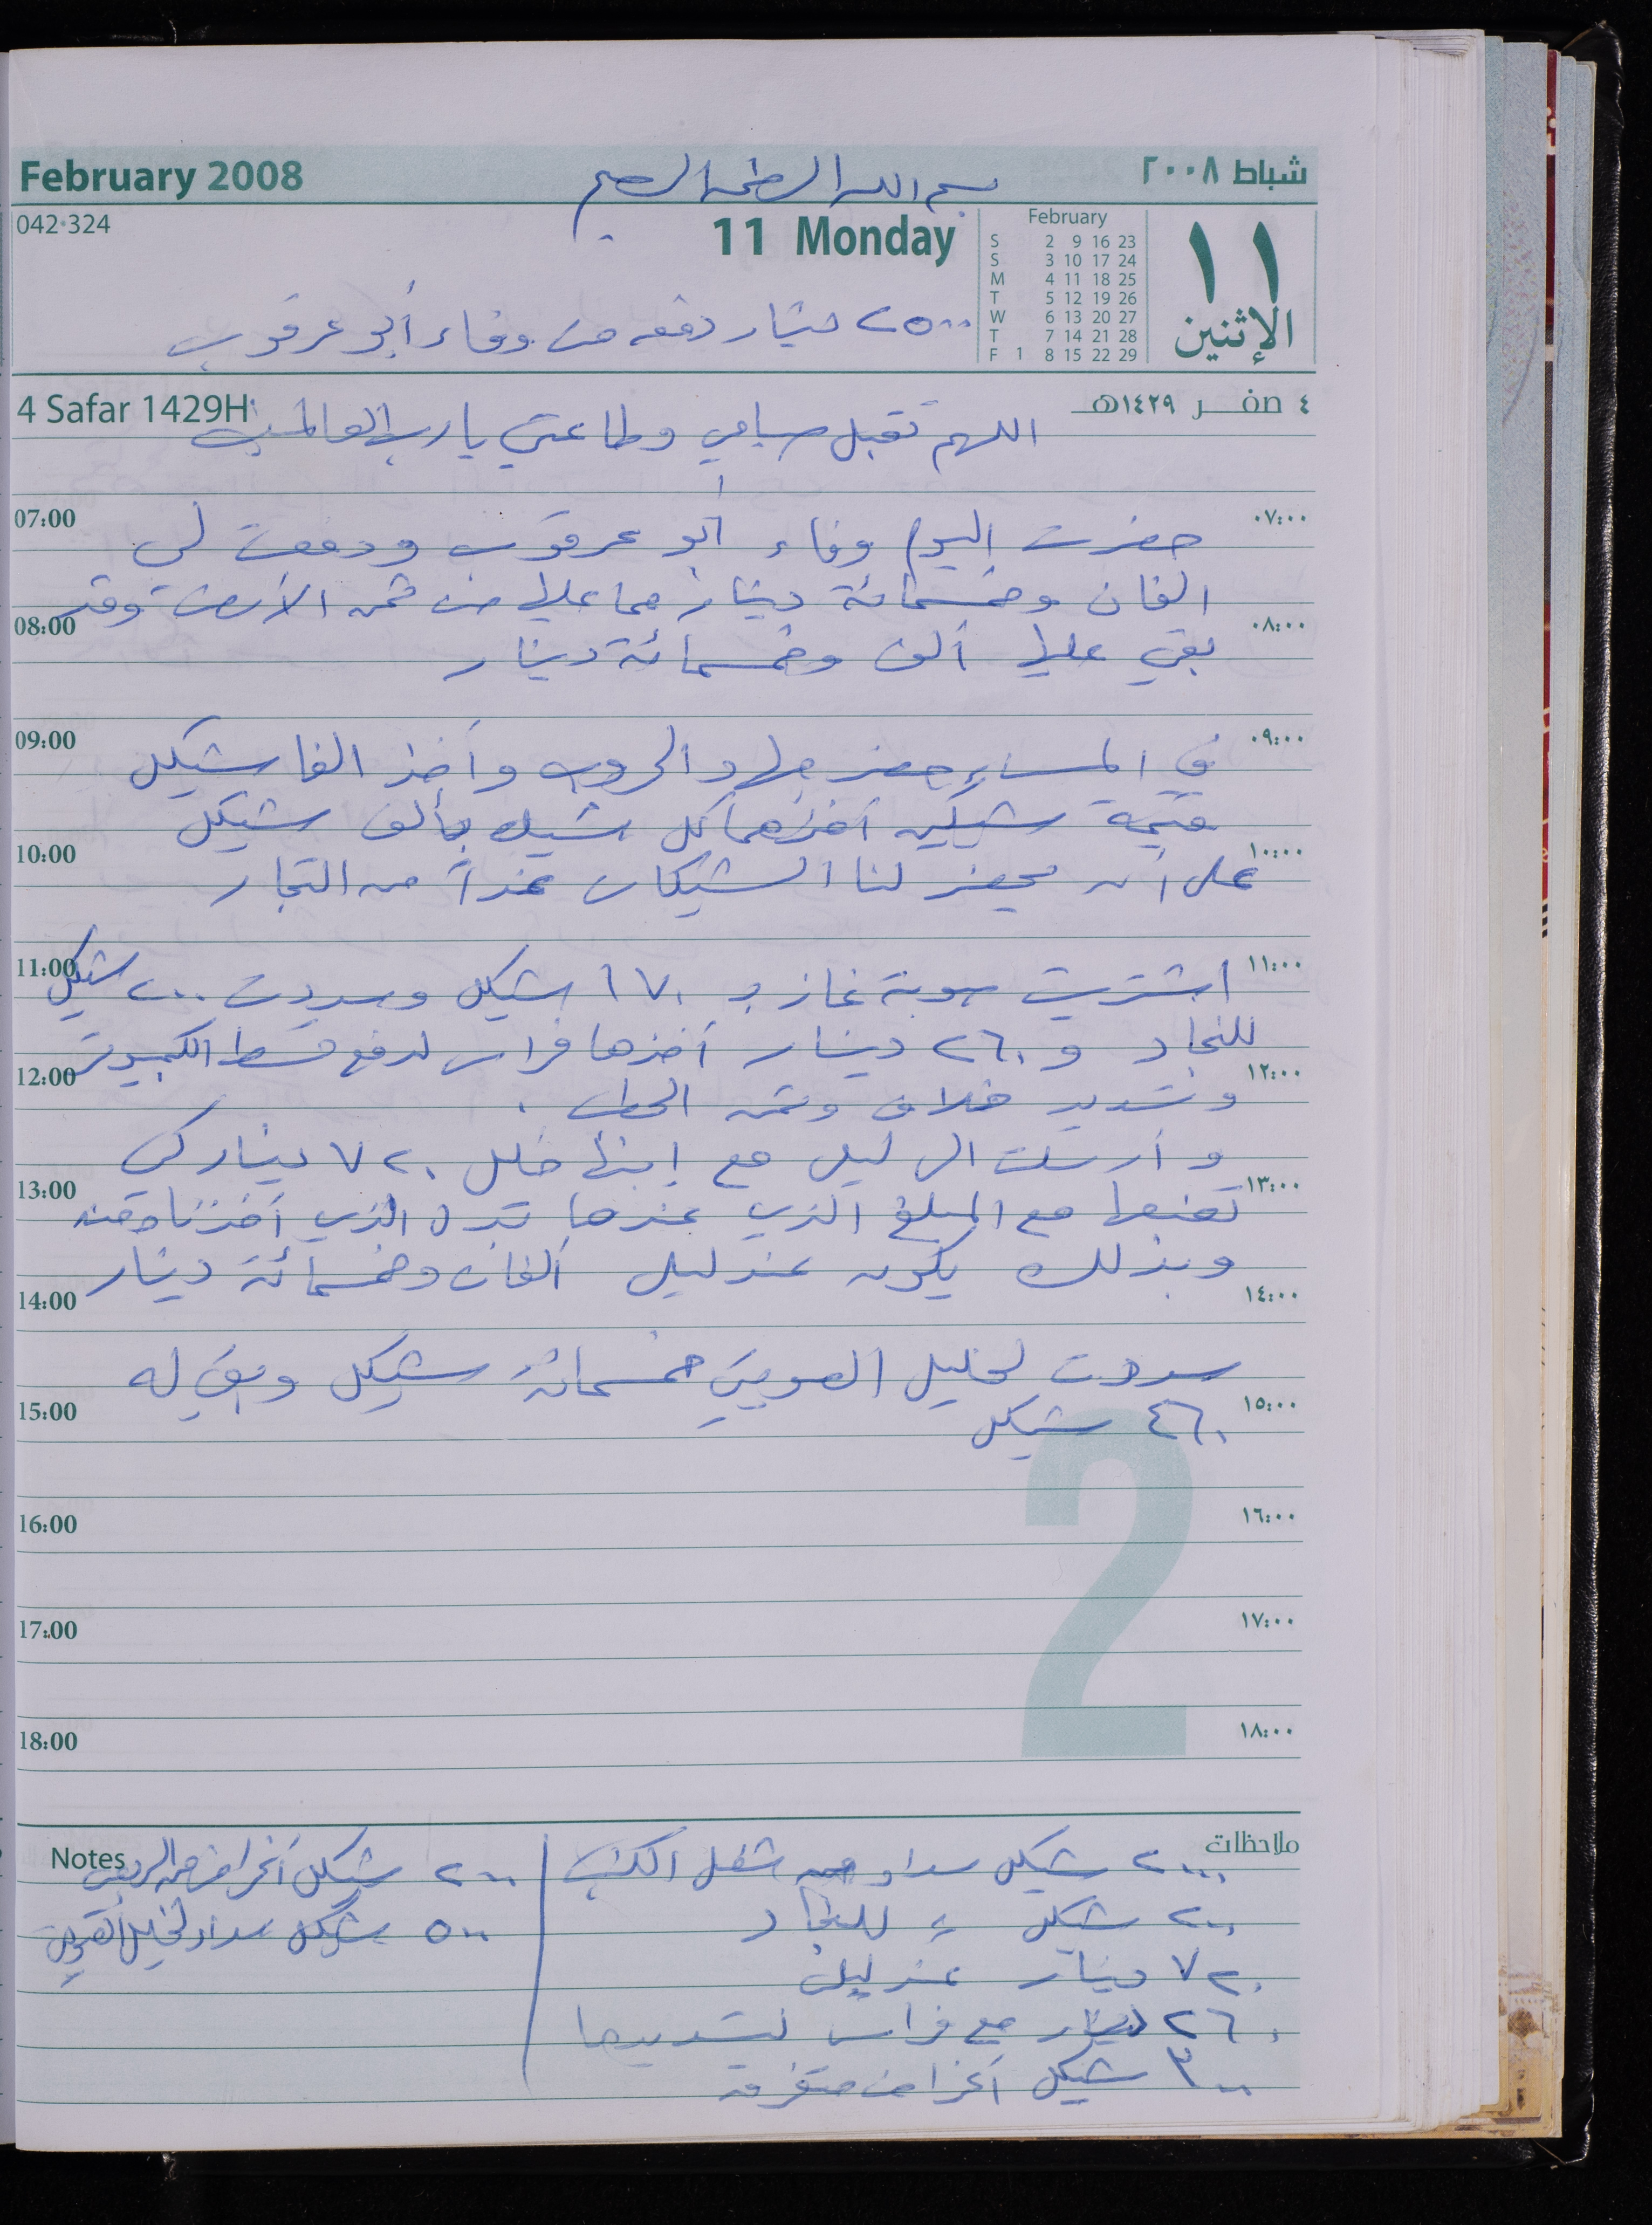 February 2008 بسم الله الرحمن الرحيم شباط ٢٠٠٨
042·324 11 Monday February ١١
S 2 9 16 23
S 3 10 17 24
M 4 11 18 25
T 5 12 19 26
W 6 13 20 27
T 7 14 21 28
F 1 8 15 22 29
الإثنين
٢٥٠٠ دينار دفعه من وفاء أبو عرقوب
4 Safar 1429H ٤ صفر ١٤٢٩هـ
اللهم تقبل صيامي وطاعتي يا رب العالمين
07:00 ٠٧:٠٠
حضرت اليوم وفاء أبو عرقوب ودفعت لي
الفان وخمسمائة دينار مما عليها من ثمن الأرض وقد
08:00 ٠٨:٠٠
بقي عليها ألف وخمسمائة دينار
09:00 ٠٩:٠٠
في المساء حضر جهاد الحروب وأخذ الفا شيكل
قيمة شيكين أخذهما كل شيك بألف شيكل
10:00 ١٠:٠٠
على أن يحضر لنا الشيكان غداً من التجار
11:00 ١١:٠٠
اشتريت صوبة غاز بـ ١٧٠ شيكل وسددت ٢٠٠ شيكل
للنجار و ٢٦٠ دينار أخذها فراس لدفع قسط الكمبيوتر
12:00 ١٢:٠٠
وتسديد خلاف وثمن الحطب .
و أرسلت الى ليلى مع ابنها خليل ٧٢٠ دينار كي
13:00 ١٣:٠٠
تضعها مع المبلغ الذي عندها بدل الذي أخذنا منه
وبذلك يكون عند ليلى ألفان وخمسمائة دينار
14:00 ١٤:٠٠
سددت لخليل العويني خمسمائة شيكل وبقي له
15:00 ١٥:٠٠
٤٦٠ شيكل
16:00 ١٦:٠٠
17:00 ١٧:٠٠
18:00 ١٨:٠٠
2
Notes ملاحظات
٢٠٠٠ شيكل سداد من شغل الكنب
٢٠٠ شيكل = للنجار
٧٢٠ دينار عند ليلى
٢٦٠ دينار مع فراس لتسديدها
٣٠٠ شيكل أغراض متفرقة
٢٠٠ شيكل أغراض من
٥٠٠ شيكل سداد لخليل العويني